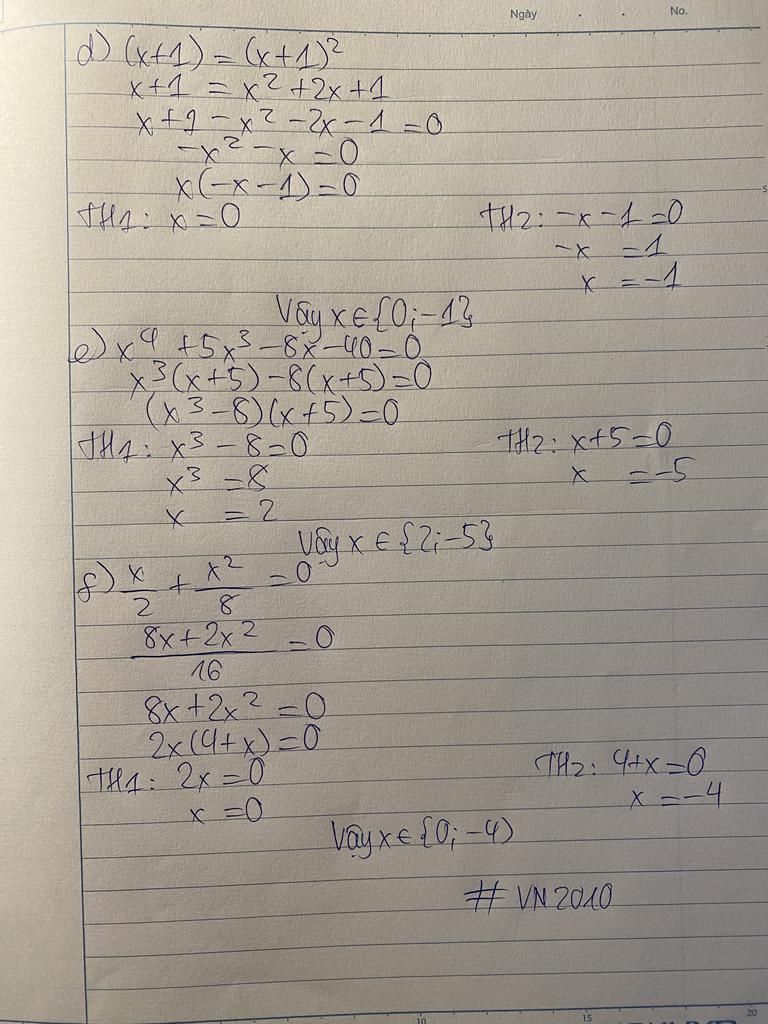 Ngày . . No.
d) (x+1) = (x+1)²
x+1 = x² +2x+1
x+1 - x² - 2x - 1 = 0
-x² - x = 0
x(-x-1) = 0
TH1: x = 0 TH2: -x - 1 = 0
-x = 1
x = -1
Vậy x ∈ {0; -1}
e) x⁴ + 5x³ - 8x - 40 = 0
x³(x+5) - 8(x+5) = 0
(x³-8)(x+5) = 0
TH1: x³ - 8 = 0 TH2: x+5 = 0
x³ = 8 x = -5
x = 2
Vậy x ∈ {2; -5}
f) x/2 + x²/8 = 0
(8x + 2x²)/16 = 0
8x + 2x² = 0
2x(4+x) = 0
TH1: 2x = 0 TH2: 4+x = 0
x = 0 x = -4
Vậy x ∈ {0; -4)
# VN2010
5
10 15 20